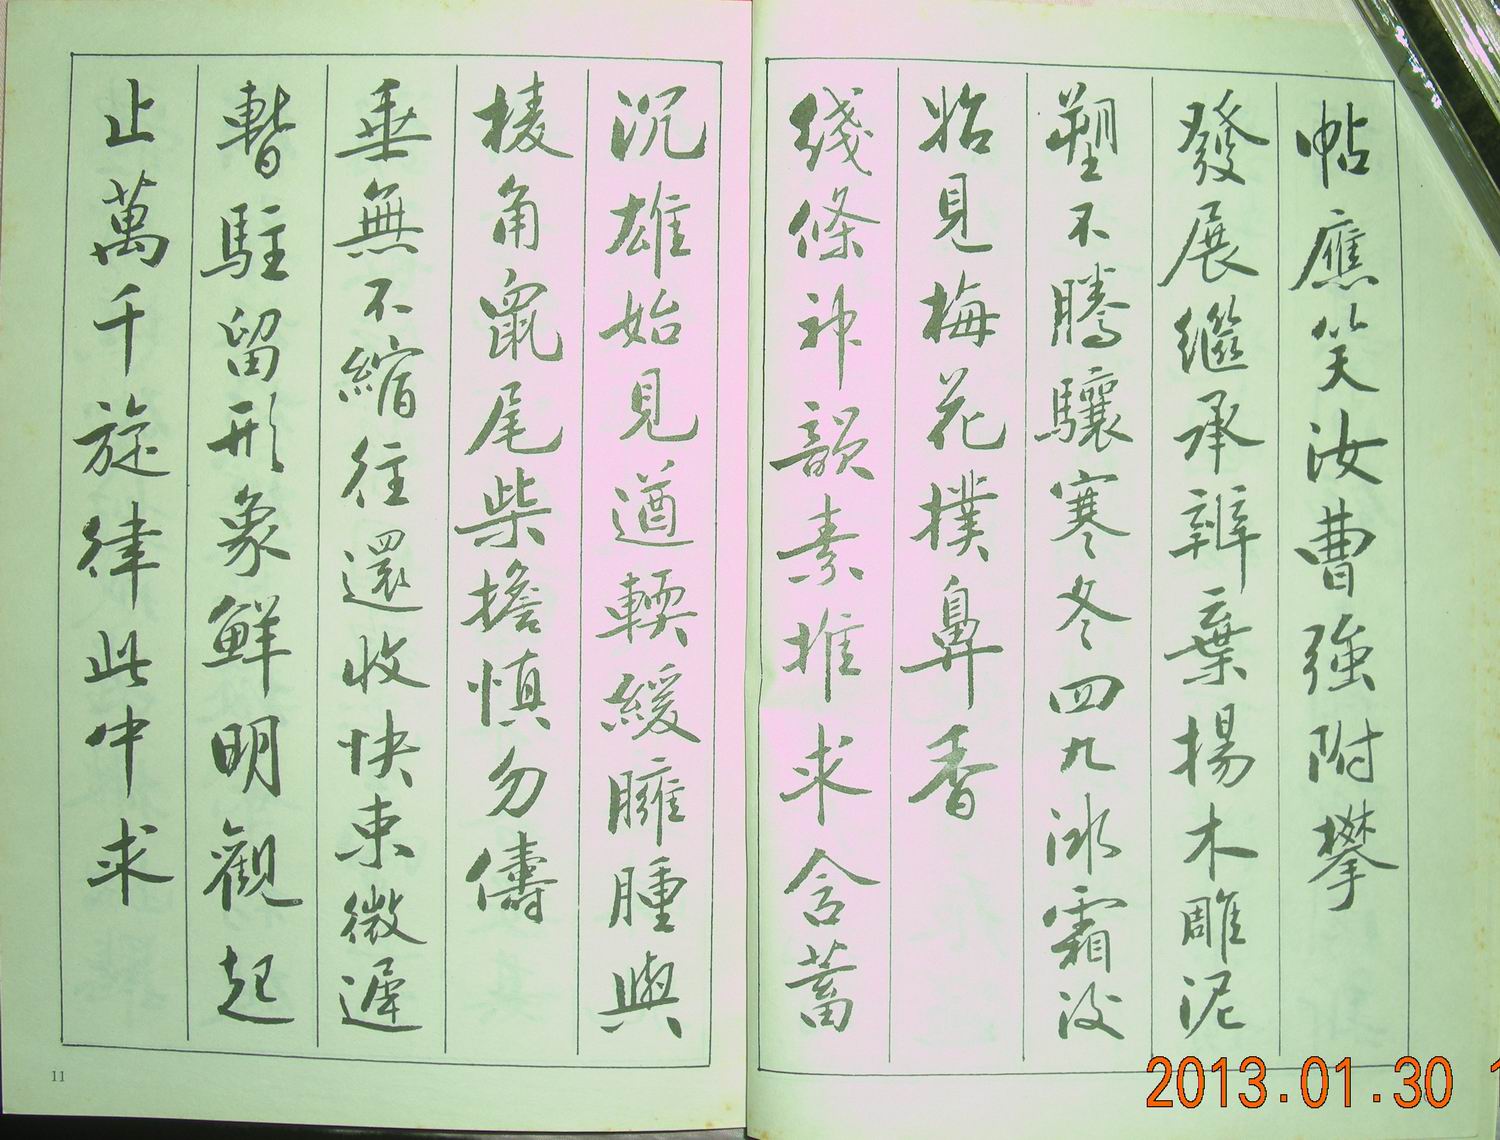 帖應笑汝曹強附攀
發展繼承辨棄揚木雕泥
塑不騰驤寒冬四九冰霜沒
始見梅花撲鼻香
线條神韻素推求含蓄
沉雄始見遒輭緩臃腫與
棱角鼠尾柴擔慎勿儔
垂無不縮往還收快束微遲
暫駐留形象鮮明觀起
止萬千旋律此中求
11
2013.01.30